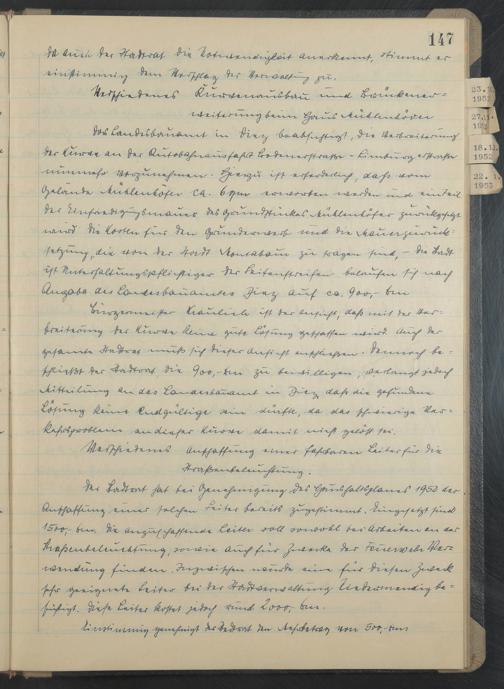 147
da auch der Stadtrat die Notwendigkeit anerkennt, stimmt er
einstimmig dem Vorschlag der Verwaltung zu.
Verschiedenes Kurvenausbau und Brückener-
weiterung beim Haus Müllenhöfer
Das Landesbauamt in Diez beabsichtigt, die Verbreiterung
der Kurve an der Autobahnausfahrt - Limburg
nunmehr vorzunehmen. Hierzu ist erforderlich, daß vom
Gelände Müllenhöfer ca. 6 qm erworben werden und ein Teil
der Einfriedigungsmauer des Grundstückes Müllenhöfer zurückgesetzt
wird. Die Kosten für den Grunderwerb und die Mauerzurück-
setzung, die von der Stadt Montabaur zu tragen sind, - die Stadt
ist Unterhaltungspflichtiger der Seitenstreifen belaufen sich nach
Angabe des Landesbauamtes Diez auf ca. 900,- DM
Bürgermeister ist der Ansicht, daß mit der Ver-
breiterung der Kurve keine gute Lösung geschaffen wird. Auch der
gesamte Stadtrat muß sich dieser Ansicht anschließen. Dennoch be-
schließt der Stadtrat die 900,- DM zu bewilligen, verlangt jedoch
Mitteilung an das Landesbauamt in Diez, daß die gefundene
Lösung keine Endgültige sein dürfte, da das schwierige Ver-
kehrsproblem an dieser Kurve damit nicht gelöst sei.
Verschiedenes Anschaffung einer fahrbaren Leiter für die
Straßenbeleuchtung.
Der Stadtrat hat bei Genehmigung des Haushaltsplanes 1952 der
Anschaffung einer solchen Leiter bereits zugestimmt. Eingesetzt sind
1500,- DM. Die anzuschaffende Leiter soll sowohl bei Arbeiten an der
Straßenbeleuchtung, sowie auch für Zwecke der Feuerwehr Ver-
wendung finden. Inzwischen wurde eine für diesen Zweck
sehr geeignete Leiter bei der Stadtverwaltung be-
sichtigt. Diese Leiter kostet jedoch rund 2000,- DM.
Einstimmig genehmigt der Stadtrat den Mehrbetrag von 500,- DM
23.
195
27.
18.
1952
22.
1953